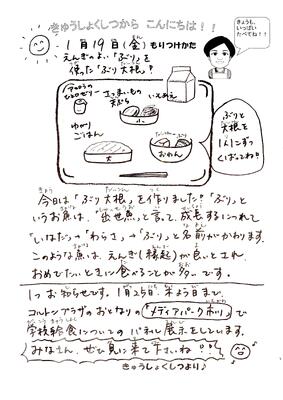 きゅうしょくしつから こんにちは！！
きょうも、
いっぱい
たべてね！！
1月19日(金) もりつけかた
えんぎのよい「ぶり」を
使った「ぶり大根」！
さつまいもの
天ぷら
小
ゆかり
ごはん
大
おわん
ぶりと
大根を
1人1こずつ
くばってね!!
今日は「ぶり大根」を作りました！「ぶり」と
いうお魚は、「出世魚」と言って、成長するにつれて
「いなだ」→「わらさ」→「ぶり」と名前がかわります。
このような魚は、えんぎ(縁起)が良いとされ、
おめでたいときに食べることが多いです。
1つお知らせです。1月25日、木よう日まで、
コルトンプラザのおとなりの「メディアパーク市川」で
学校給食についてのパネル展示をしています。
みなさん、ぜひ見に来て下さいね!!
きゅうしょくしつより♪